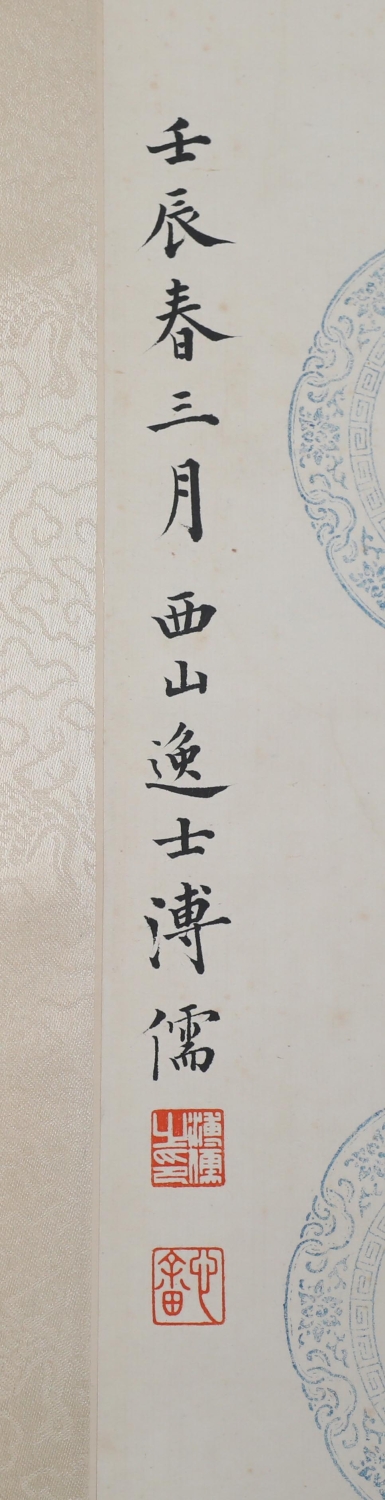 壬辰春三月西山逸士溥儒
溥儒之印
心畬